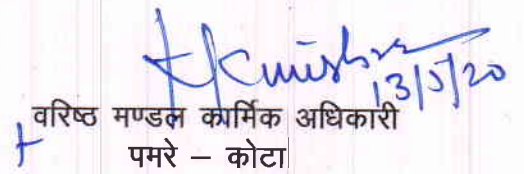 13/5/20
वरिष्ठ मण्डल कार्मिक अधिकारी
पमरे – कोटा